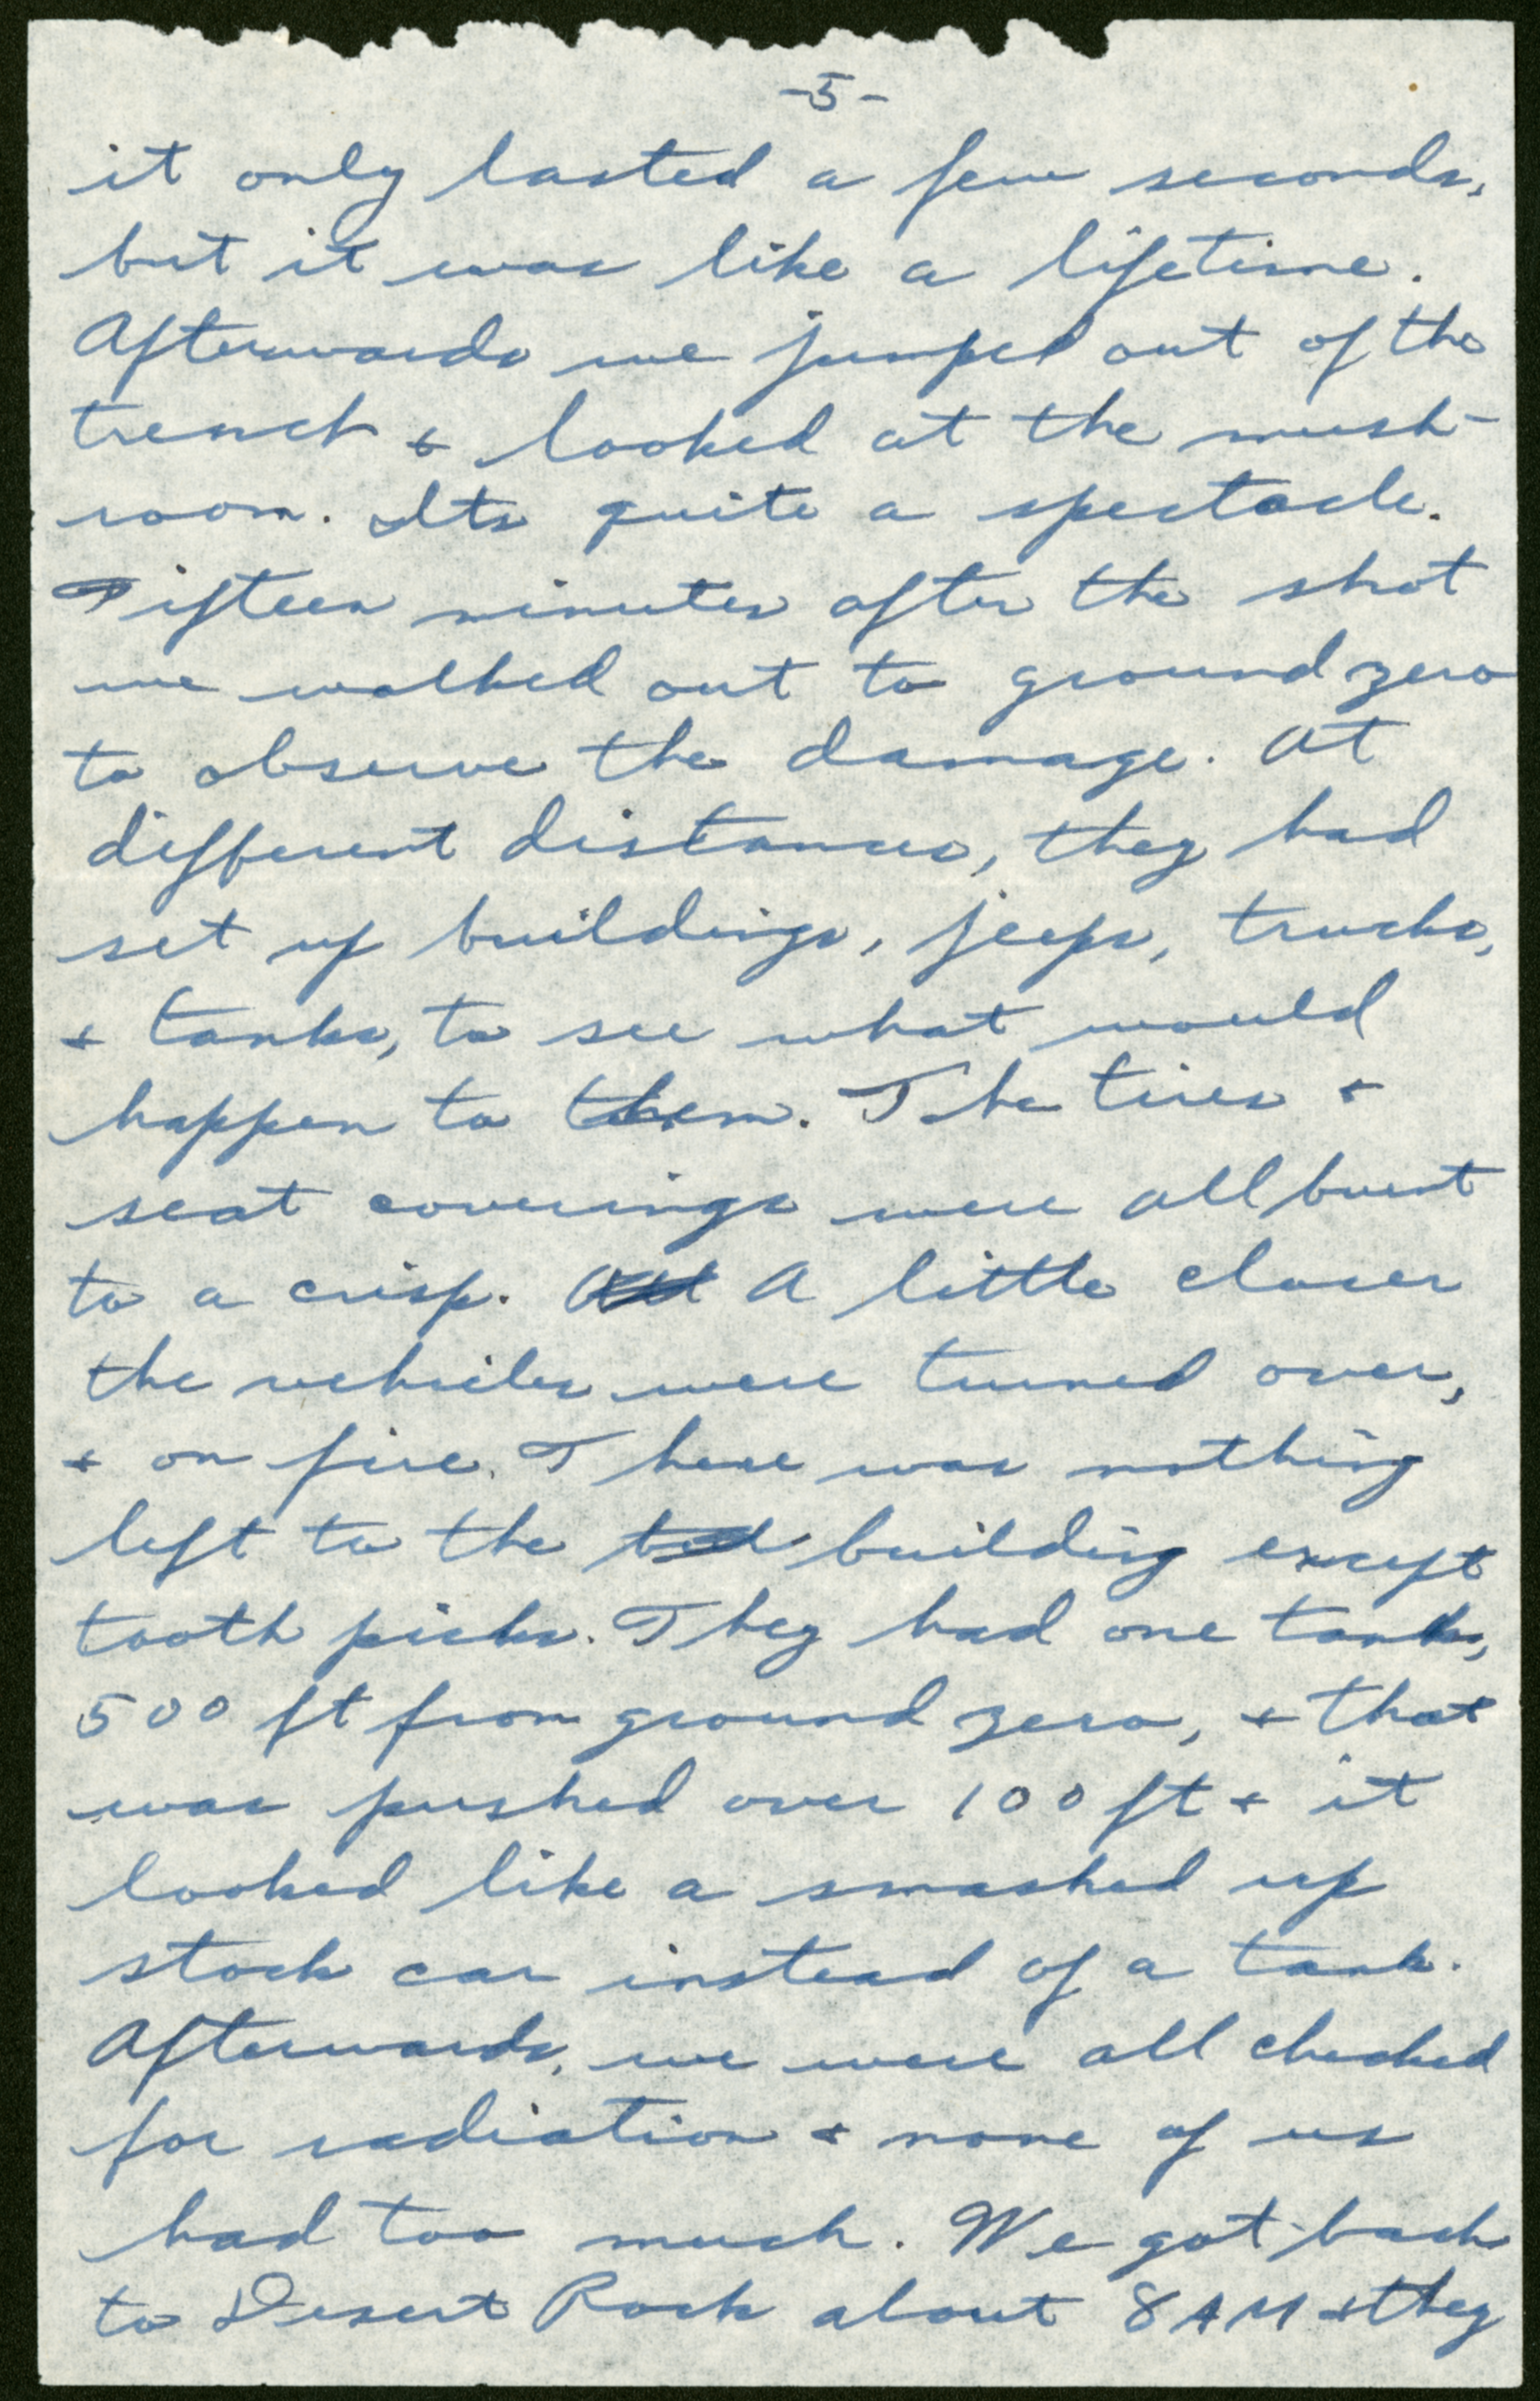 -5-
it only lasted a few seconds,
but it was like a lifetime.
Afterwards we jumped out of the
trench + looked at the mush-
room. Its quite a spectacle.
Fifteen minutes after the shot
we walked out to ground zero
to observe the damage. At
different distances, they had
set up buildings, jeeps, trucks,
+ tanks, to see what would
happen to them. The tires +
seat coverings were all burnt
to a crisp. A little closer
the vehicles were turned over,
+ on fire. There was nothing
left to the building except
tooth picks. They had one tank,
500 ft from ground zero, + that
was pushed over 100 ft + it
looked like a smashed up
stock car instead of a tank.
Afterwards, we were all checked
for radiation + none of us
had too much. We got back
to Desert Rock about 8 AM + they